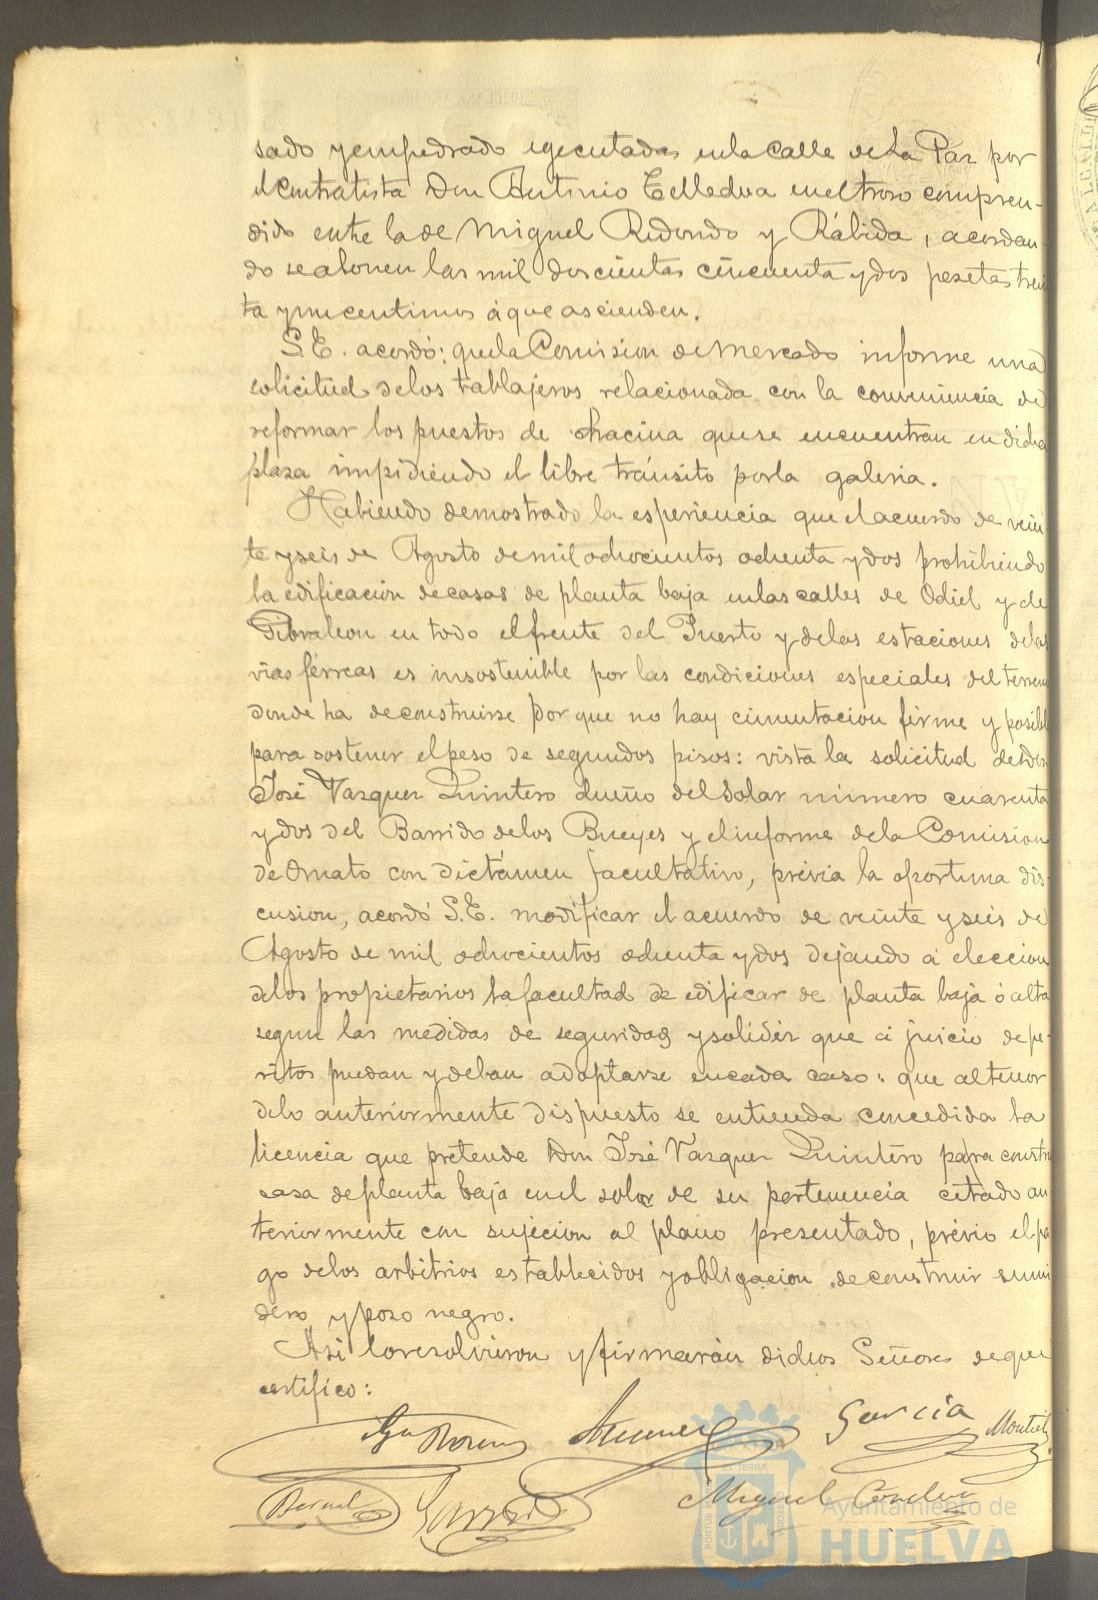 sado y empedrado egecutadas en la calle de la Paz por
el contratista Don Antonio en el trozo compren-
dido entre la de Miguel Redondo y Rábida, acordan-
do se abonen las mil doscientas cincuenta y dos pesetas trein
ta y un centimos á que ascienden.
S.E. acordó: que la Comision de Mercado informe una
solicitud de los tablajeros relacionada con la conveniencia de
reformar los puestos de chacina que se encuentran en dicha
plaza impidiendo el libre tránsito por la galeria.
Habiendo demostrado la esperiencia que el acuerdo de vein
te y seis de Agosto de mil ochocientos ochenta y dos prohibiendo
la edificación de casas de planta baja en las calles de Odiel y de
Gibraleon en todo el frente del Puerto y de las estaciones de las
vias férreas es insostenible por las condiciones especiales del terreno
donde ha de construirse por que no hay cimentacion firme y posible
para sostener el peso de segundos pisos: vista la solicitud de Don
José Vazquez Quintero dueño del solar número cuarenta
y dos del Barrido de los Bueyes y el informe de la Comision
de Ornato con dictámen facultativo, prévia la oportuna dis-
cusion, acordó S.E. modificar el acuerdo de veinte y seis de
Agosto de mil ochocientos ochenta y dos dejando á eleccion
de los propietarios la facultad de edificar de planta baja ó alta
segun las medidas de seguridad y solidéz que á juicio de pe-
ritos puedan y deban adoptarse en cada caso: que al tenor
de lo anteriormente dispuesto se entienda concedida la
licencia que pretende Don José Vazquez Quintero para constr
casa de planta baja en el solar de su pertenencia citado an
teriormente con sujecion al plano presentado, prévio el pa
go de los arbitrios establecidos y obligacion de construir sumi
dero y pozo negro.
Asi lo resolvieron y firmarán dichos Señores de que
certifico:
García Montiel
Bernal Garrido Miguel
PORTUS ET TERRAE CUSTODIA
Ayuntamiento de
HUELVA